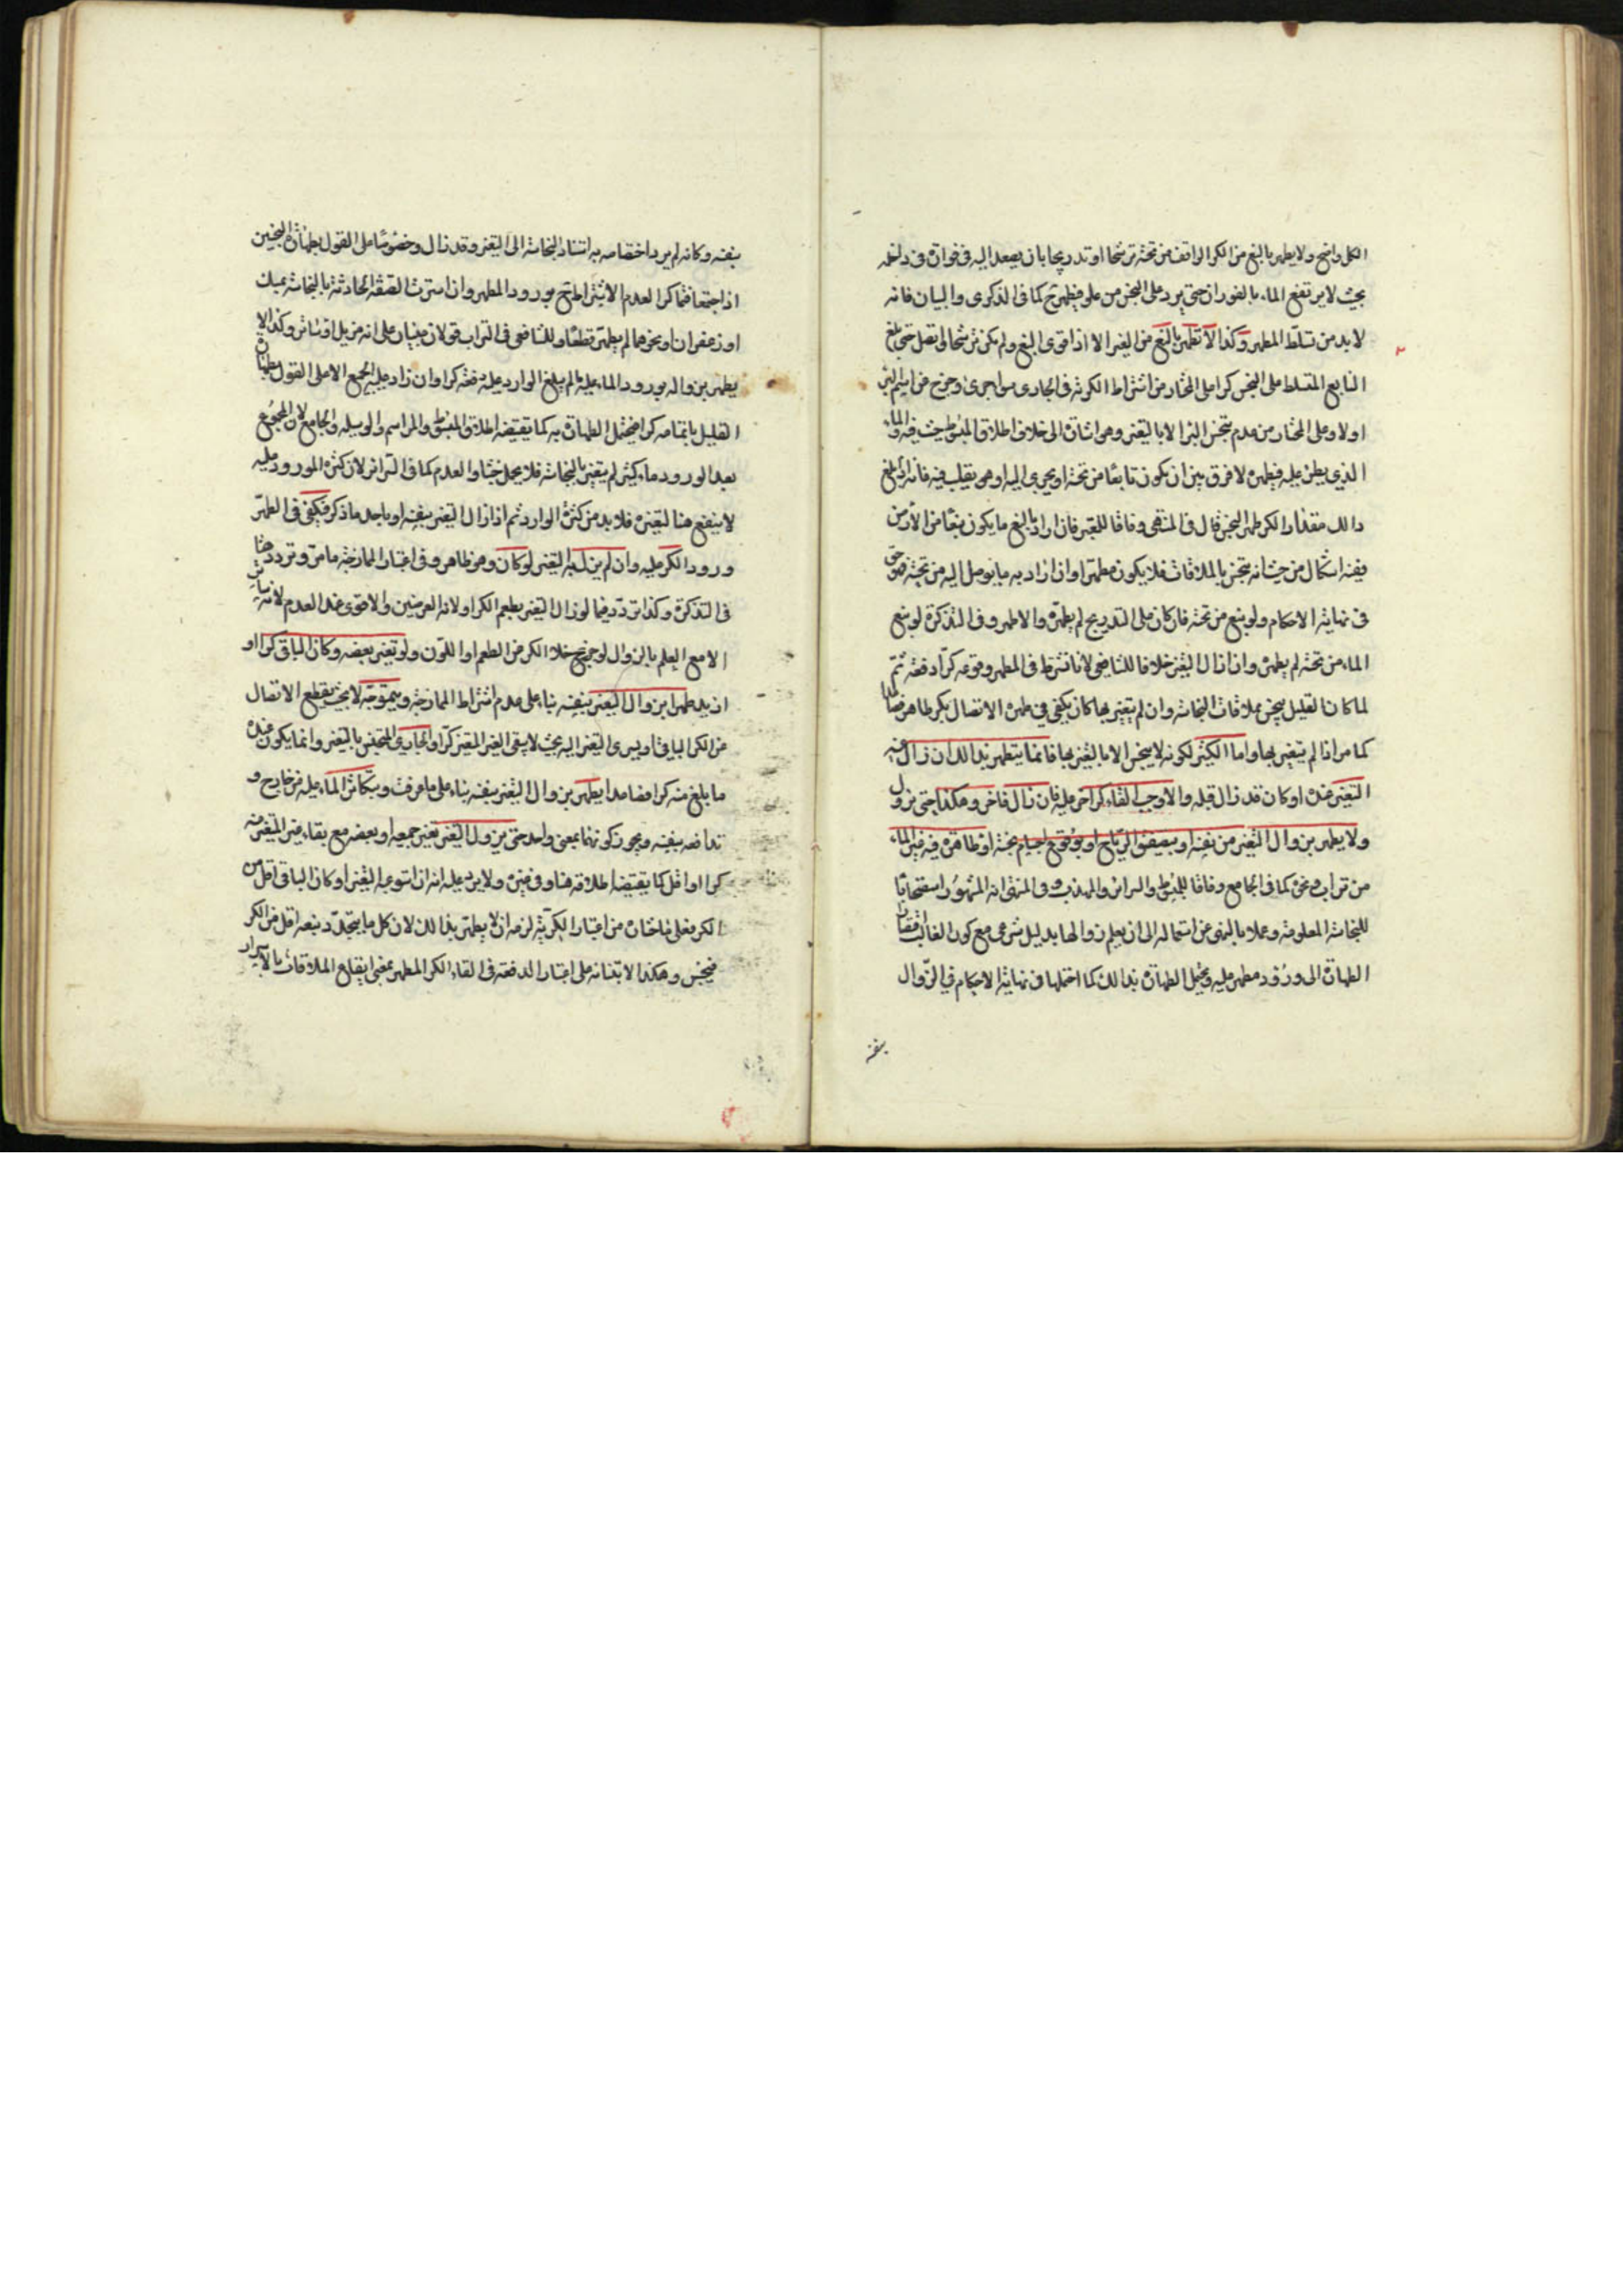 الكل واضح ولا يطهر بالنبع من الكر الواقف من تحته ترشحا او تدريجا بان يصعد اليه في فوارة في داخله
بحيث لا يرتفع الماء بالفوران حتى يرد على النجس من علو فيطهر ح كما في الذكرى والبيان فانه
لا بد من تسلط المطهر وكذا لا تطهر بالنبع من البئر الا اذا قوى النبع ولم يكن ترشحا لم تصل حتى بلغ
النابع المتسلط على النجس كرا على المختار من اشتراط الكرية في الجاري سواء جرى وخرج من
اولا وعلى المختار من عدم تنجس البئر الا بالتغير وهو اشارة الى خلاف اطلاق المبسوط حيث فيه والماء
الذي يطرء عليه فيطهره لا فرق بين ان يكون نابعا من تحته او يجري اليه او هو يقلب فيه فانه اذا بلغ
ذلك مقدار الكر طهر النجس قال في المنتهى وفاقا للمعتبر فان اراد بالنبع ما يكون نبعا من الارض
ففيه اشكال من حيث انه ينجس بالملاقات فلا يكون مطهرا وان اراد به ما يوصل اليه من تحته فهو حق
في نهاية الاحكام ولو نبع من تحته فان كان على التدريج لم يطهره والا طهر وفي التذكرة لو نبع
الماء من تحته لم يطهره وان ازال التغير خلافا للشافعي لانا نشترط في المطهر وقوعه كرا دفعة ثم
لما كان القليل ينجس بملاقات النجاسة وان لم يتغير بها كان يكفي في طهره الاتصال بكر طاهر
كما مر اذا لم يتغير بها واما الكثير لكونه لا ينجس الا بالتغير بها فانما يتطهر بذلك ان زال عنه
التغير عنده او كان قد زال قبله والا وجب القاء كر اخر عليه فان زال فاخر وهكذا حتى يزول
ولا يطهر بزوال التغير من نفسه او بتصفيق الرياح او بوقوع اجسام نجسة او طاهرة فيه غير الماء
من تراب ونحوه كما في الجامع وفاقا للمبسوط والسرائر والمهذب وفي المنتهى انه المشهور استصحابا
للنجاسة المعلومة وعملا بالنهي عن استعماله الى ان يعلم زوالها بدليل شرعي مع كون الغالب افتقار
الطهارة الى ورود مطهر عليه ويحتمل الطهارة بذلك كما احتملها في نهاية الاحكام في الزوال
بنفسه
بنفسه وكانه لم يرد اختصاصه به استناد النجاسة الى التغير وقد زال وخصوصا على القول بطهارة النجسين
اذا اجتمعا فتما كرا لعدم الاشتراط ح بورود المطهر وان استرت الصفة الحادثة بالنجاسة بمسك
او زعفران او نحوهما لم يطهر قطعا وللشافعي في التراب قولان مبنيان على انه مزيل او ساتر وكذا لا
يطهر بزواله بورود الماء عليه ما لم يبلغ الوارد عليه دفعة كرا وان زاد عليه الجمع الا على القول بطهارة
القليل باتمامه كرا فيحتمل الطهارة به كما تقتضيه اطلاق المبسوط والمراسم والوسيلة والجامع لان المجموع
بعد الورود ماء كثير لم يتغير بالنجاسة فلا يحمل خبثا والعدم كما في السرائر لان كثرة المورود عليه
لا ينفع هنا لتغيره فلا بد من كثرة الوارد ثم اذا زال التغير بنفسه او باحد ما ذكر فيكفي في الطهر
ورود الكر عليه وان لم يزل به التغير لو كان وهو ظاهر وفي اعتبار الممازجة ما مر وتردد هنا
في التذكرة وكذا تردد فيما لو زال التغير بطعم الكر او لونه العرضيين والاقوى عند العدم لانه ساتر
الا مع العلم بالزوال لو خرج خلا الكر من الطعم او اللون ولو تغير بعضه وكان الباقي كرا او
ازيد طهرا بزوال التغير بنفسه بناء على عدم اشتراط الممازجة وبتموجه لا بحيث يقطع الاتصال
من الكر الباقي او يسري التغير اليه بحيث لا يبقى الغير المتغير كرا والجاري المتغير بالتغير وانما يكون عنده
ما بلغ منه كرا فصاعدا يطهر بزوال التغير بنفسه بناء على ما عرفت وبتكاثر الماء عليه من خارج و
تدافعه بنفسه ويجوز كونهما بمعنى واحد حتى يزول التغير تغير جميعه او بعضه مع بقاء غير المتغير منه
كرا او اقل كما يقتضيه اطلاقه هنا وفي غيره ولا يرد عليه انه ان استوعبه التغير او كان الباقي اقل من
الكر فعلى ما اختاره من اعتبار الكرية لزمه ان لا يطهر بذلك لان كل ما يتجدد نبعه اقل من الكر
فينجس وهكذا لابتنائه على اعتبار الدفعة في القاء الكر المطهر بمعنى ايقاع الملاقات بالاكرار